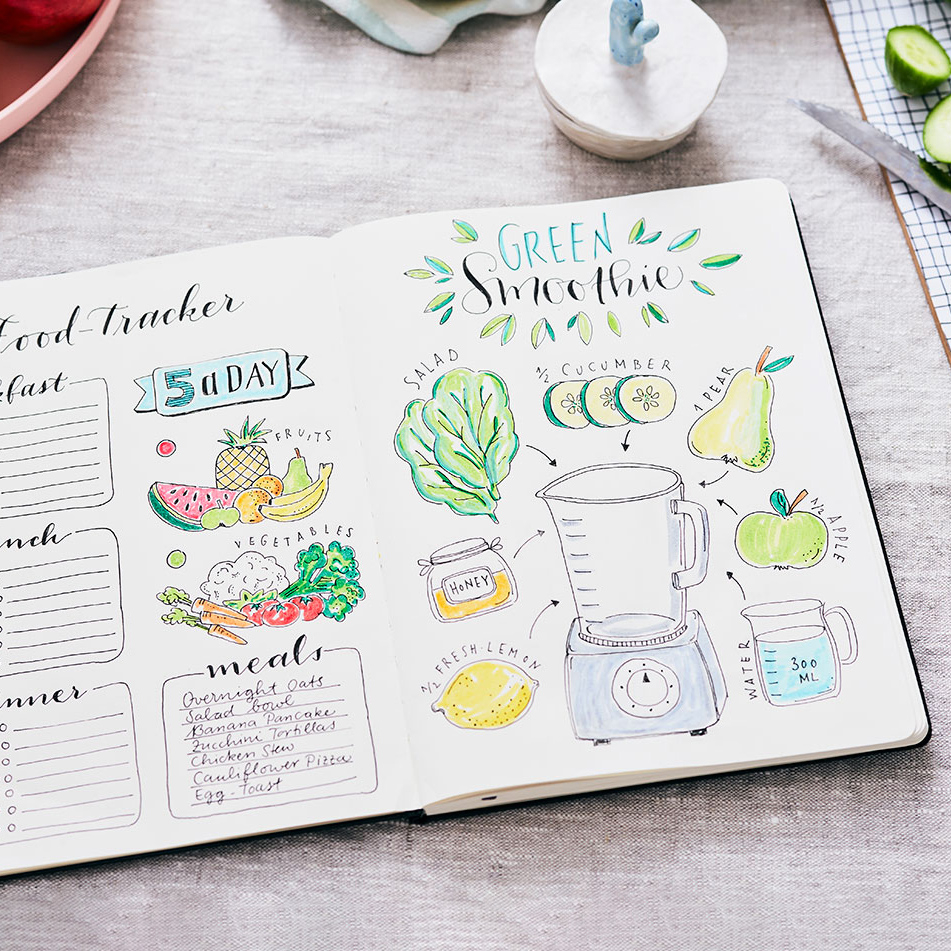 Food-Tracker
kfast
nch
nner
5 a DAY
FRUITS
VEGETABLES
meals
Overnight Oats
Salad bowl
Banana Pancake
Zucchini Tortillas
Chicken Stew
Cauliflower Pizza
Egg-Toast
GREEN
Smoothie
SALAD
1/2 CUCUMBER
1 PEAR
HONEY
1/2 APPLE
1/2 FRESH-LEMON
WATER
300
ML